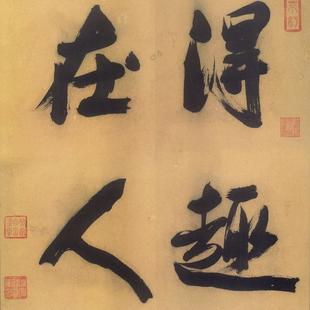 得趣
在人